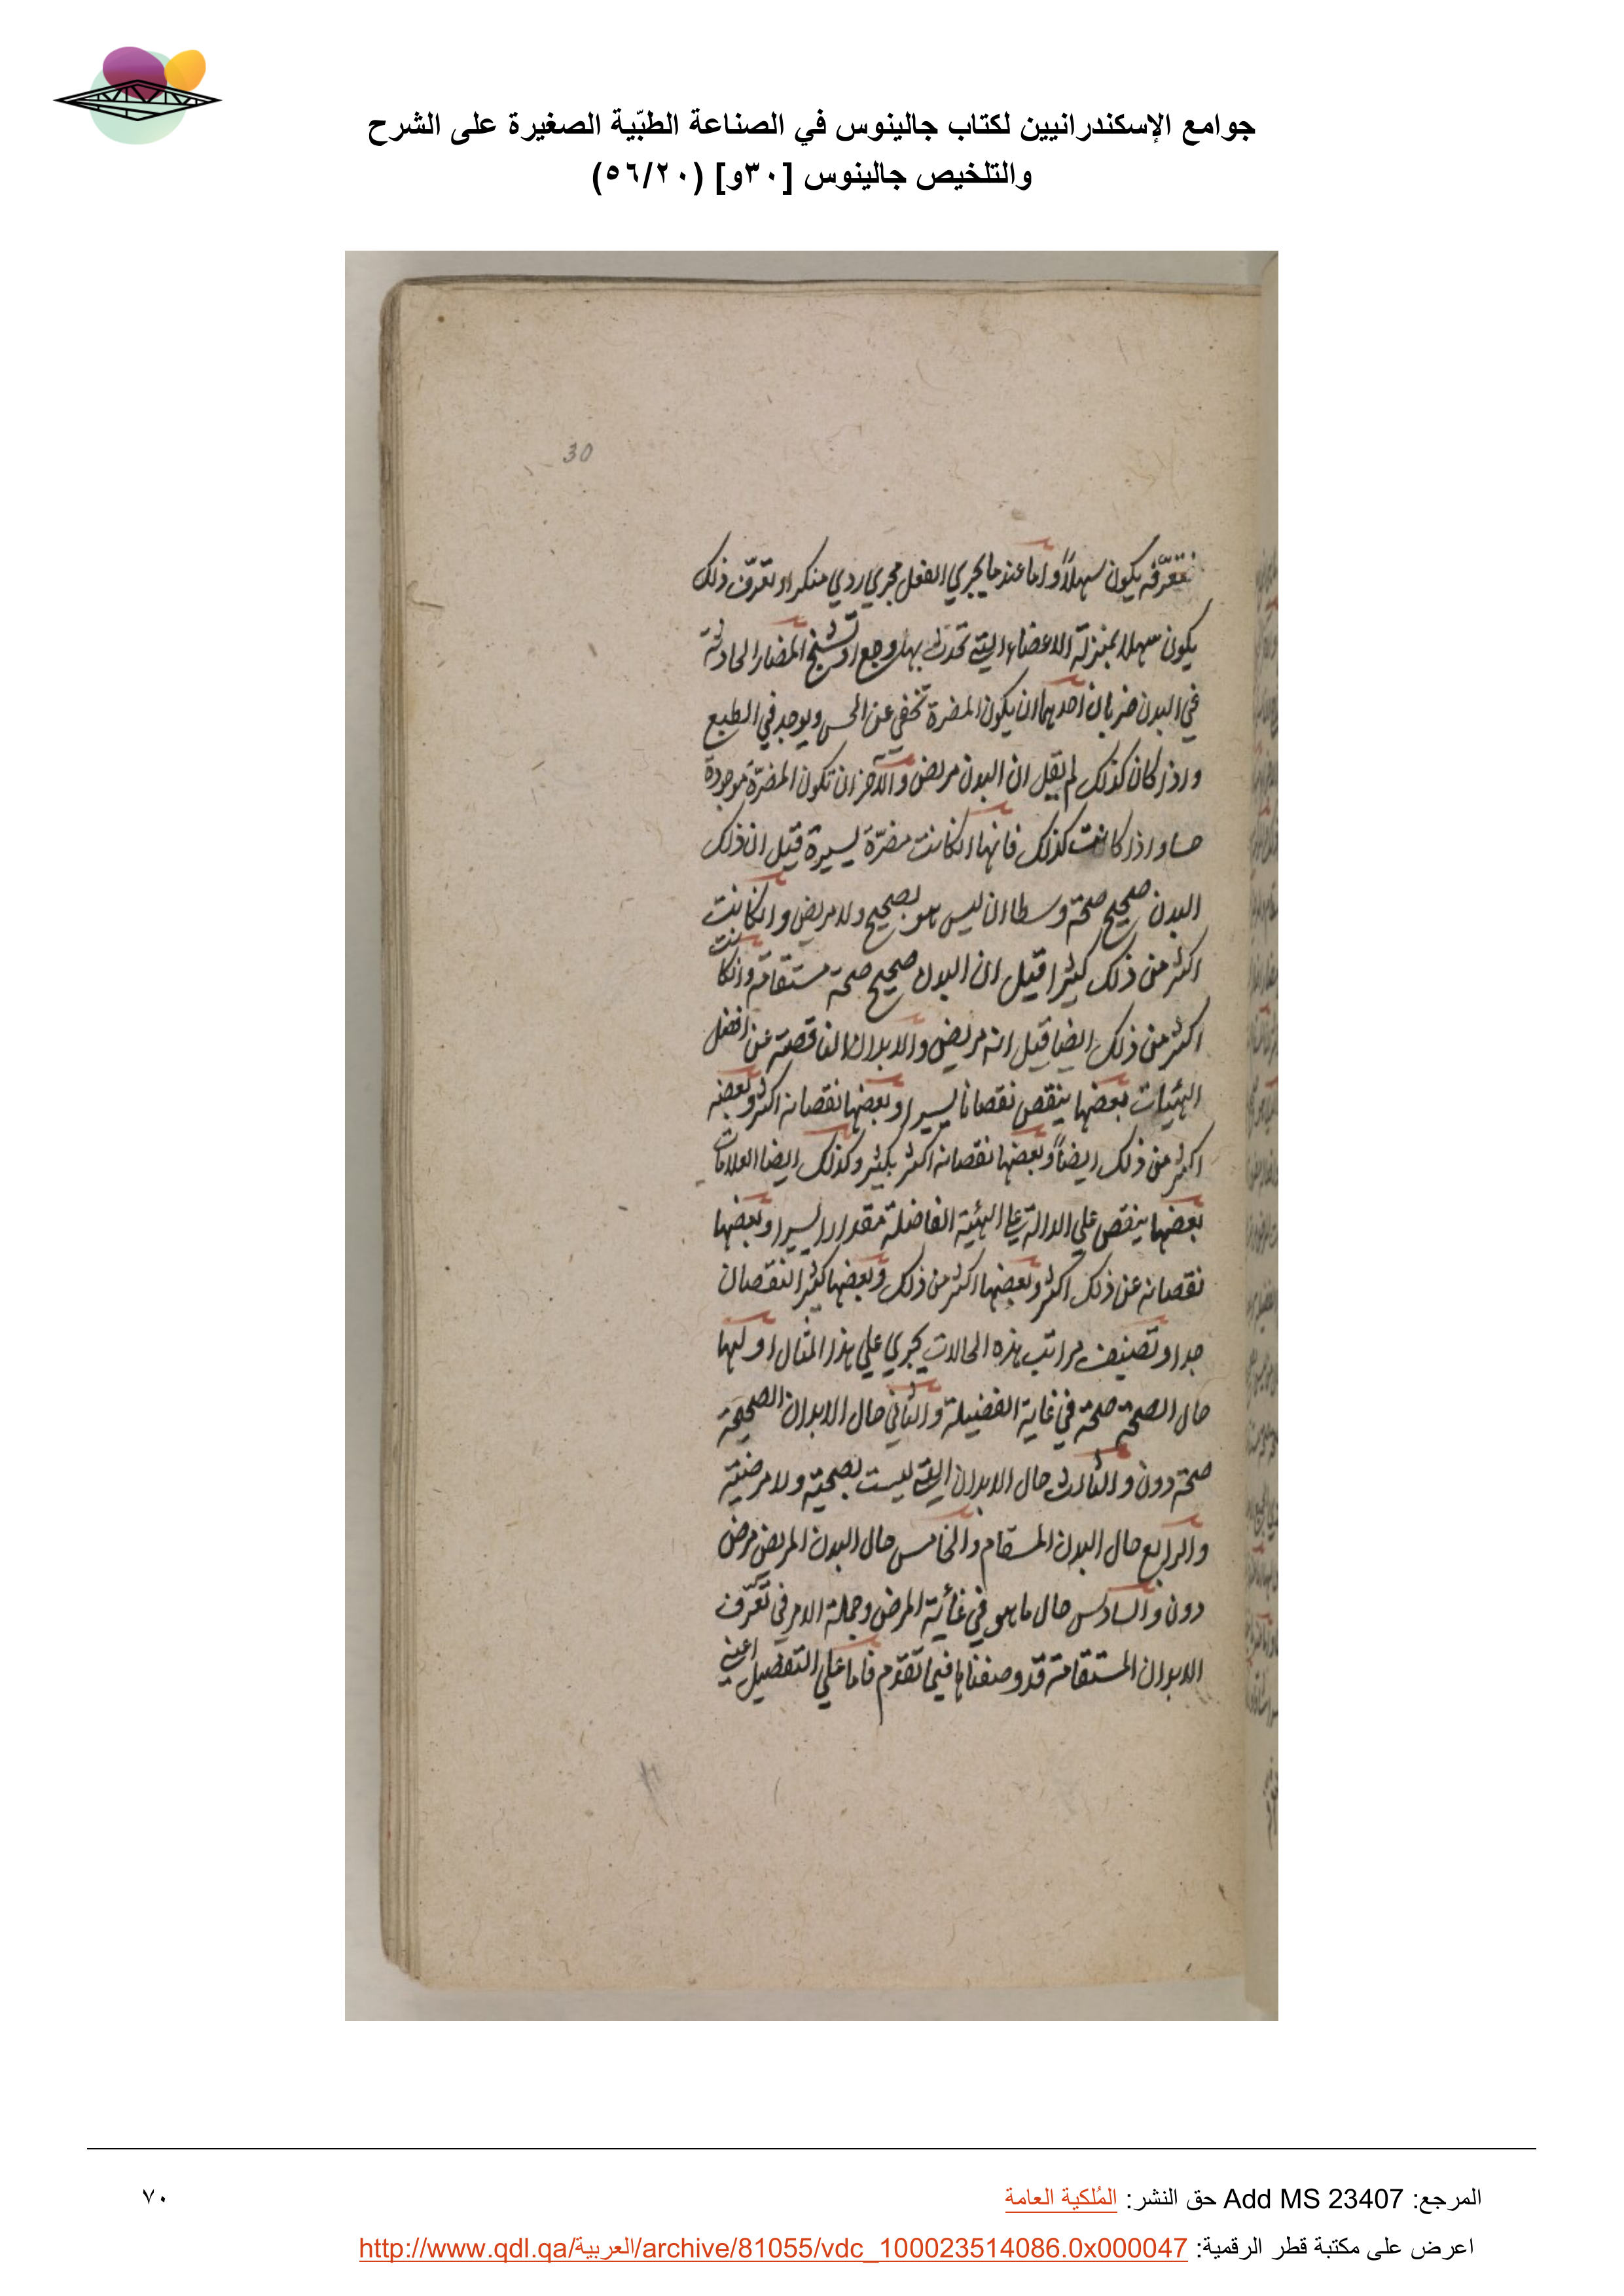 جوامع الإسكندرانيين لكتاب جالينوس في الصناعة الطبّية الصغيرة على الشرح
والتلخيص جالينوس [٣٠و] (٥٦/٢٠)
30
تعرّفه يكون سهلاً واما عندما يجري الفعل مجري ردي منكرا وتعرّف ذلك
يكون سهلا بمنزلة الاعضاء التي تحدث بها وجع او تشنج المضار الحادثة
في البدن ضربان احدهما ان يكون المضرة تخفي عن الحس ويوجد في الطبع
واذا كان كذلك لم يقل ان البدن مريض والآخر ان تكون المضرّة موجودة
حسا واذا كانت كذلك فانها انكانت مضرّة يسيرة قيل ان ذلك
البدن صحيح صحة وسطا ان ليس هو بصحيح ولا مريض وانكانت
اكثر من ذلك كثيرا قيل ان البدن صحيح صحة مستقامة وانكانت
اكثر من ذلك ايضا قيل انه مريض والابدان الناقصة عن افضل
الهيئات بعضها ينقص نقصانا يسيرا وبعضها نقصانه اكثر وبعضه
اكثر من ذلك ايضاً وبعضها نقصانه اكثر بكثير وكذلك ايضا العلامات
بعضها ينقص علي الدالة علي الهيئة الفاضلة مقدارا يسيرا وبعضها
نقصانه عن ذلك اكثر وبعضها اكثر من ذلك وبعضها كثير النقصان
جدا وتصنيف مراتب هذه الحالات يجري علي هذا المثال اولها
حال الصحة صحة في غاية الفضيلة والثاني حال الابدان الصحيحة
صحة دون والثالث حال الابدان التي ليست بصحية ولا مرضية
والرابع حال البدن المسقام والخامس حال البدن المريض مرض
دون والسادس حال ما هو في غاية المرض وجملة الامر في تعرّف
الابدان المستقامة قد وصفناها فيما تقدّم فاما علي التفصيل اعني
المرجع: Add MS 23407 حق النشر: المُلكية العامة
٧٠
اعرض على مكتبة قطر الرقمية: http://www.qdl.qa/العربية/archive/81055/vdc_100023514086.0x000047